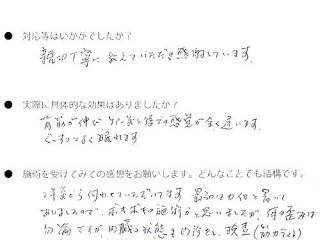 ● 対応等はいかがでしたか？
親切丁寧に教えていただき感謝しています。
● 実際に具体的な効果はありましたか？
背筋が伸び 行く前と後での感覚が全く違います。
ぐっすりよく眠れます
● 施術を受けてみての感想をお願いします。どんなことでも結構です。
伺わせていただいてます 最初は カイロと書いて
ありましたので、ボキボキの施術かと思いましたが、体の歪みは
勿論ですが 内臓の状態も 改善(筋力テスト